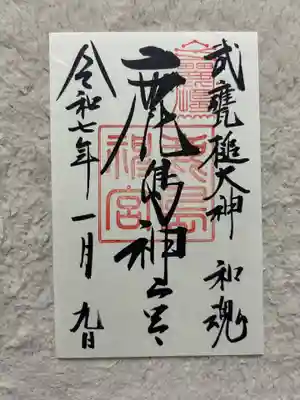 武甕槌大神 和魂
鹿島神宮
令和七年一月九日
鹿島
神宮